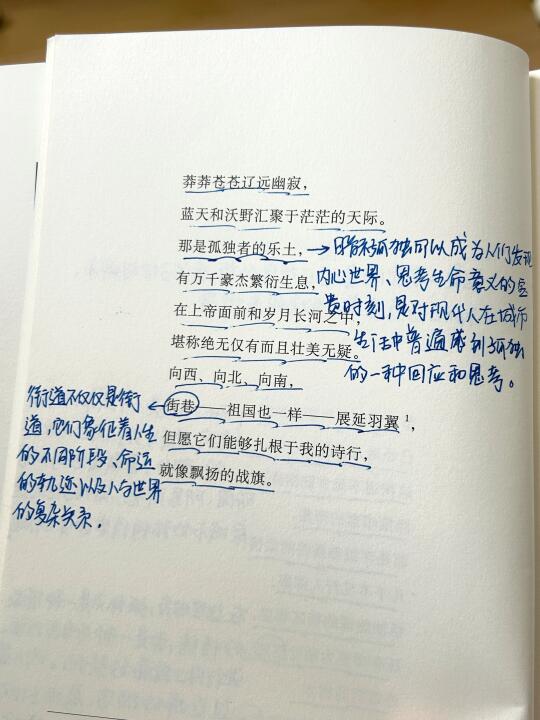 莽莽苍苍辽远幽寂，
蓝天和沃野汇聚于茫茫的天际。
那是孤独者的乐土，
有万千豪杰繁衍生息，
在上帝面前和岁月长河之中，
堪称绝无仅有而且壮美无疑。
向西、向北、向南，
街巷——祖国也一样——展延羽翼¹，
但愿它们能够扎根于我的诗行，
就像飘扬的战旗。
→暗示孤独可以成为人们发现
内心世界、思考生命意义的宝
贵时刻，是对现代人在城市
生活中普遍感到孤独
的一种回应和思考。
街道不仅仅是街
道，它们象征着人生
的不同阶段、命运
的轨迹以及人与世界
的复杂关系。